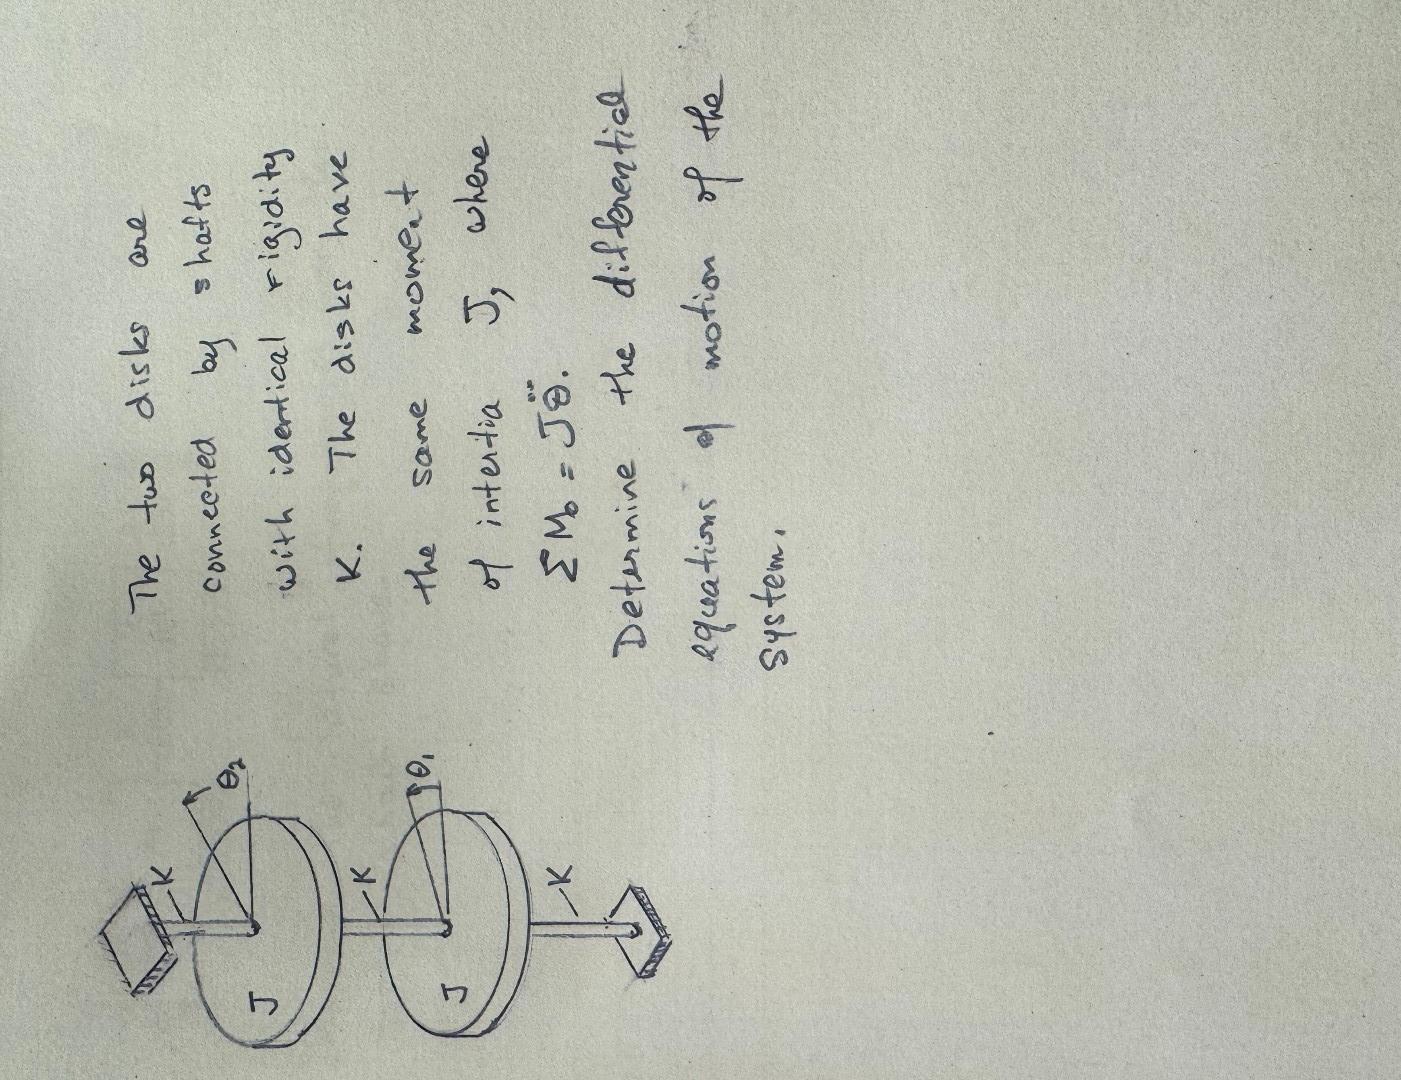 The two disks are
connected by shafts
with identical rigidity
K. The disks have
the same moment
of intertia J, where
ΣM₀ = Jθ̈.
Determine the differential
equations of motion of the
System.
K
θ₂
J
K
θ₁
J
K